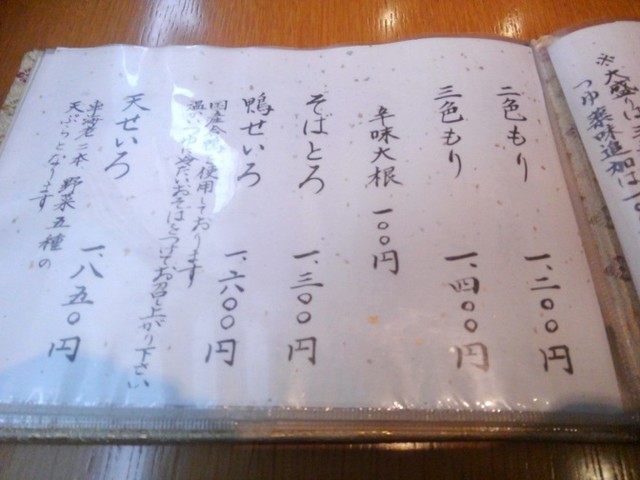 ※大盛りは
つゆ 薬味追加は一〇
二色もり 一、二〇〇円
三色もり 一、四〇〇円
辛味大根 一〇〇円
そばとろ 一、三〇〇円
鴨せいろ 一、六〇〇円
国産合鴨を使用しております
温かいつゆに冷たいおそばをつけてお召し上がり下さい
天せいろ 一、八五〇円
車海老二本 野菜五種の
天ぷらとなります